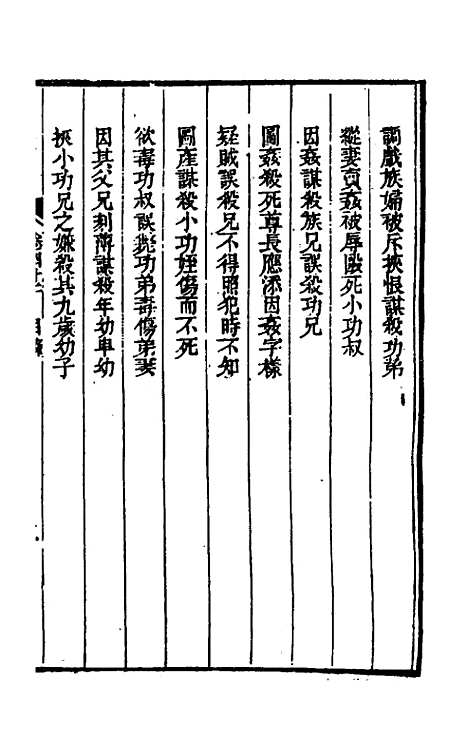 調戲族婦被斥挾恨謀殺功弟
縱妻賣姦被辱毆死小功叔
因姦謀殺族兄誤殺功兄
圖姦殺死尊長應添因姦字樣
疑賊誤殺兄不得照犯時不知
圖產謀殺小功姪傷而不死
欲毒功叔誤斃功弟毒傷弟妻
因其父兄刻薄謀殺年幼卑幼
挾小功兄之嫌殺其九歲幼子
目錄